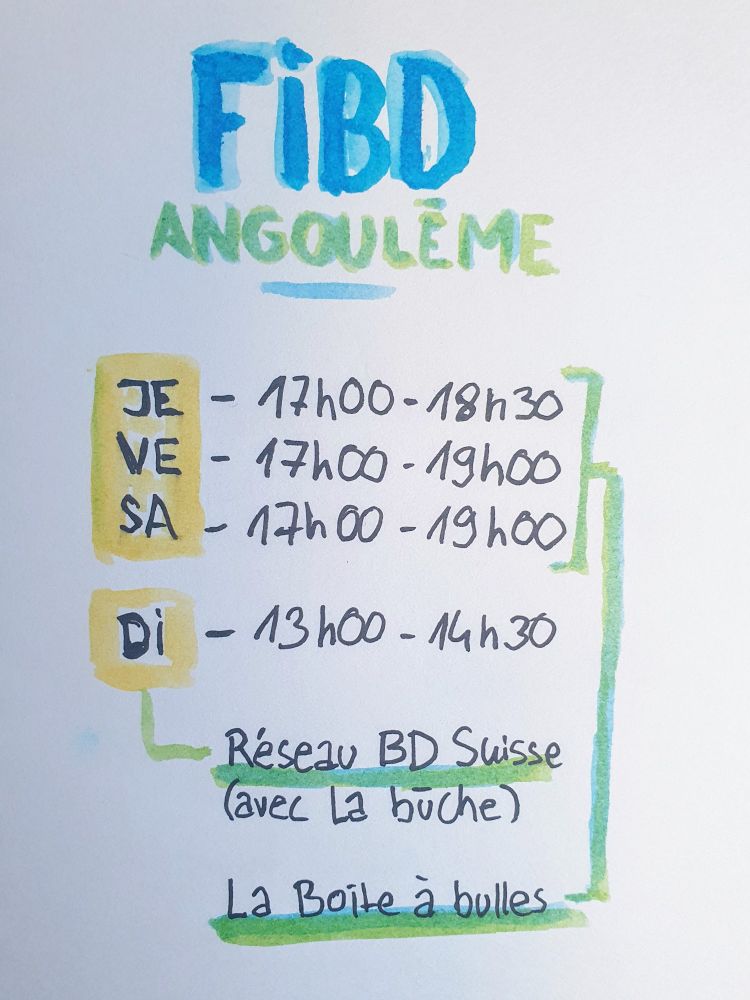 FiBD
ANGOULÊME
JE - 17h00 - 18h30
VE - 17h00 - 19h00
SA - 17h00 - 19h00
Di - 13h00 - 14h30
Réseau BD Suisse
(avec La bûche)
La Boîte à bulles